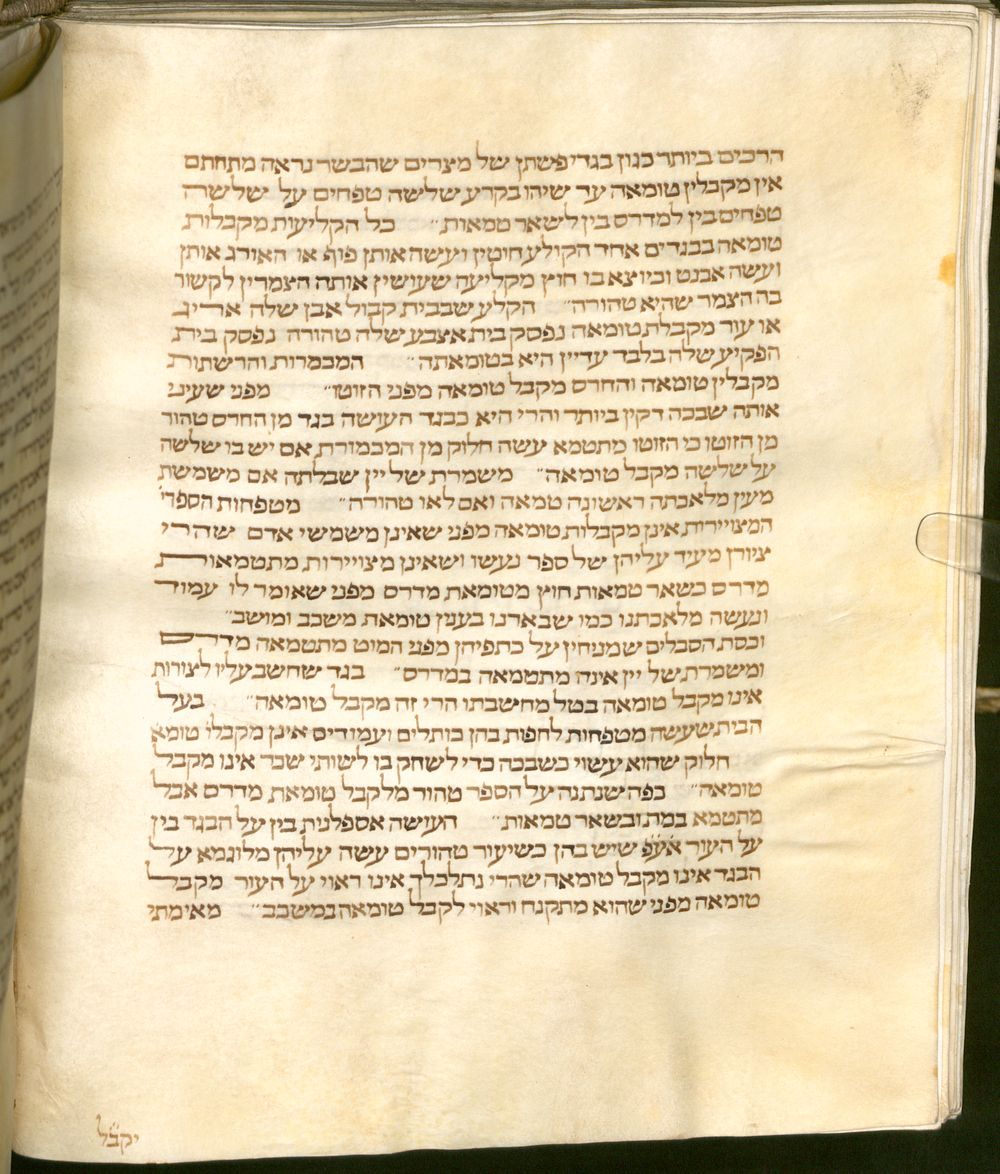 הרכים ביותר כגון בגדי פשתן של מצרים שהבשר נראה מתחתם
אין מקבלין טומאה עד שיהו בקרע שלשה טפחים על שלשה
טפחים בין למדרס בין לשאר טמאות״ כל הקליעות מקבלות
טומאה בבגדים אחד הקולע חוטין ועשה אותן פיף או האורג אותן
ועשה אבנט וכיוצא בו חוץ מקליעה שעושין אותה הצמרין לקשור
בה הצמר שהיא טהורה״ הקלע שבבית קבול אבן שלה אריג
או עור מקבלת טומאה נפסק בית אצבע שלה טהורה נפסק בית
הפקיע שלה בלבד עדיין היא בטומאתה״ המכמרות והרשתות
מקבלין טומאה והחרס מקבל טומאה מפני הזוטו״ מפני שעיני
אותה שבכה דקין ביותר והרי היא כבגד העושה בגד מן החרס טהור
מן הזוטו כי הזוטו מתטמא עשה חלוק מן המכמורת אם יש בו שלשה
על שלשה מקבל טומאה״ משמרת של יין שבלתה אם משמשת
מעין מלאכתה ראשונה טמאה ואם לאו טהורה״ מטפחות הספרי
המצויירות אינן מקבלות טומאה מפני שאינן משמשי אדם שהרי
ציורן מעיד עליהן של ספר נעשו ושאינן מצויירות מתטמאות
מדרס כשאר טמאות חוץ מטומאת מדרס מפני שאומר לו עמוד
ונעשה מלאכתנו כמו שבארנו בענין טומאת משכב ומושב״
וכסת הסבלים שמניחין על כתפיהן מפני המוט מתטמאה מדרס
ומשמרת של יין אינה מתטמאה במדרס״ בגד שחשב עליו לצורות
אינו מקבל טומאה בטל מחשבתו הרי זה מקבל טומאה״ בעל
הבית שעשה מטפחות לחפות בהן כותלים ועמודים אינן מקבלו טומא
חלוק שהוא עשוי כשבכה כדי לשחק בו לשותי שכר אינו מקבל
טומאה״ כפה שנתנה על הספר טהור מלקבל טומאת מדרס אבל
מתטמא במת ובשאר טמאות״ העושה אספלנית בין על הבגד בין
על העור אעפ שיש בהן כשיעור טהורים עשה עליהן מלוגמא על
הבגד אינו מקבל טומאה שהרי נתלכלך אינו ראוי על העור מקבל
טומאה מפני שהוא מתקנח וראוי לקבל טומאה במשכב״ מאימתי
יקבל